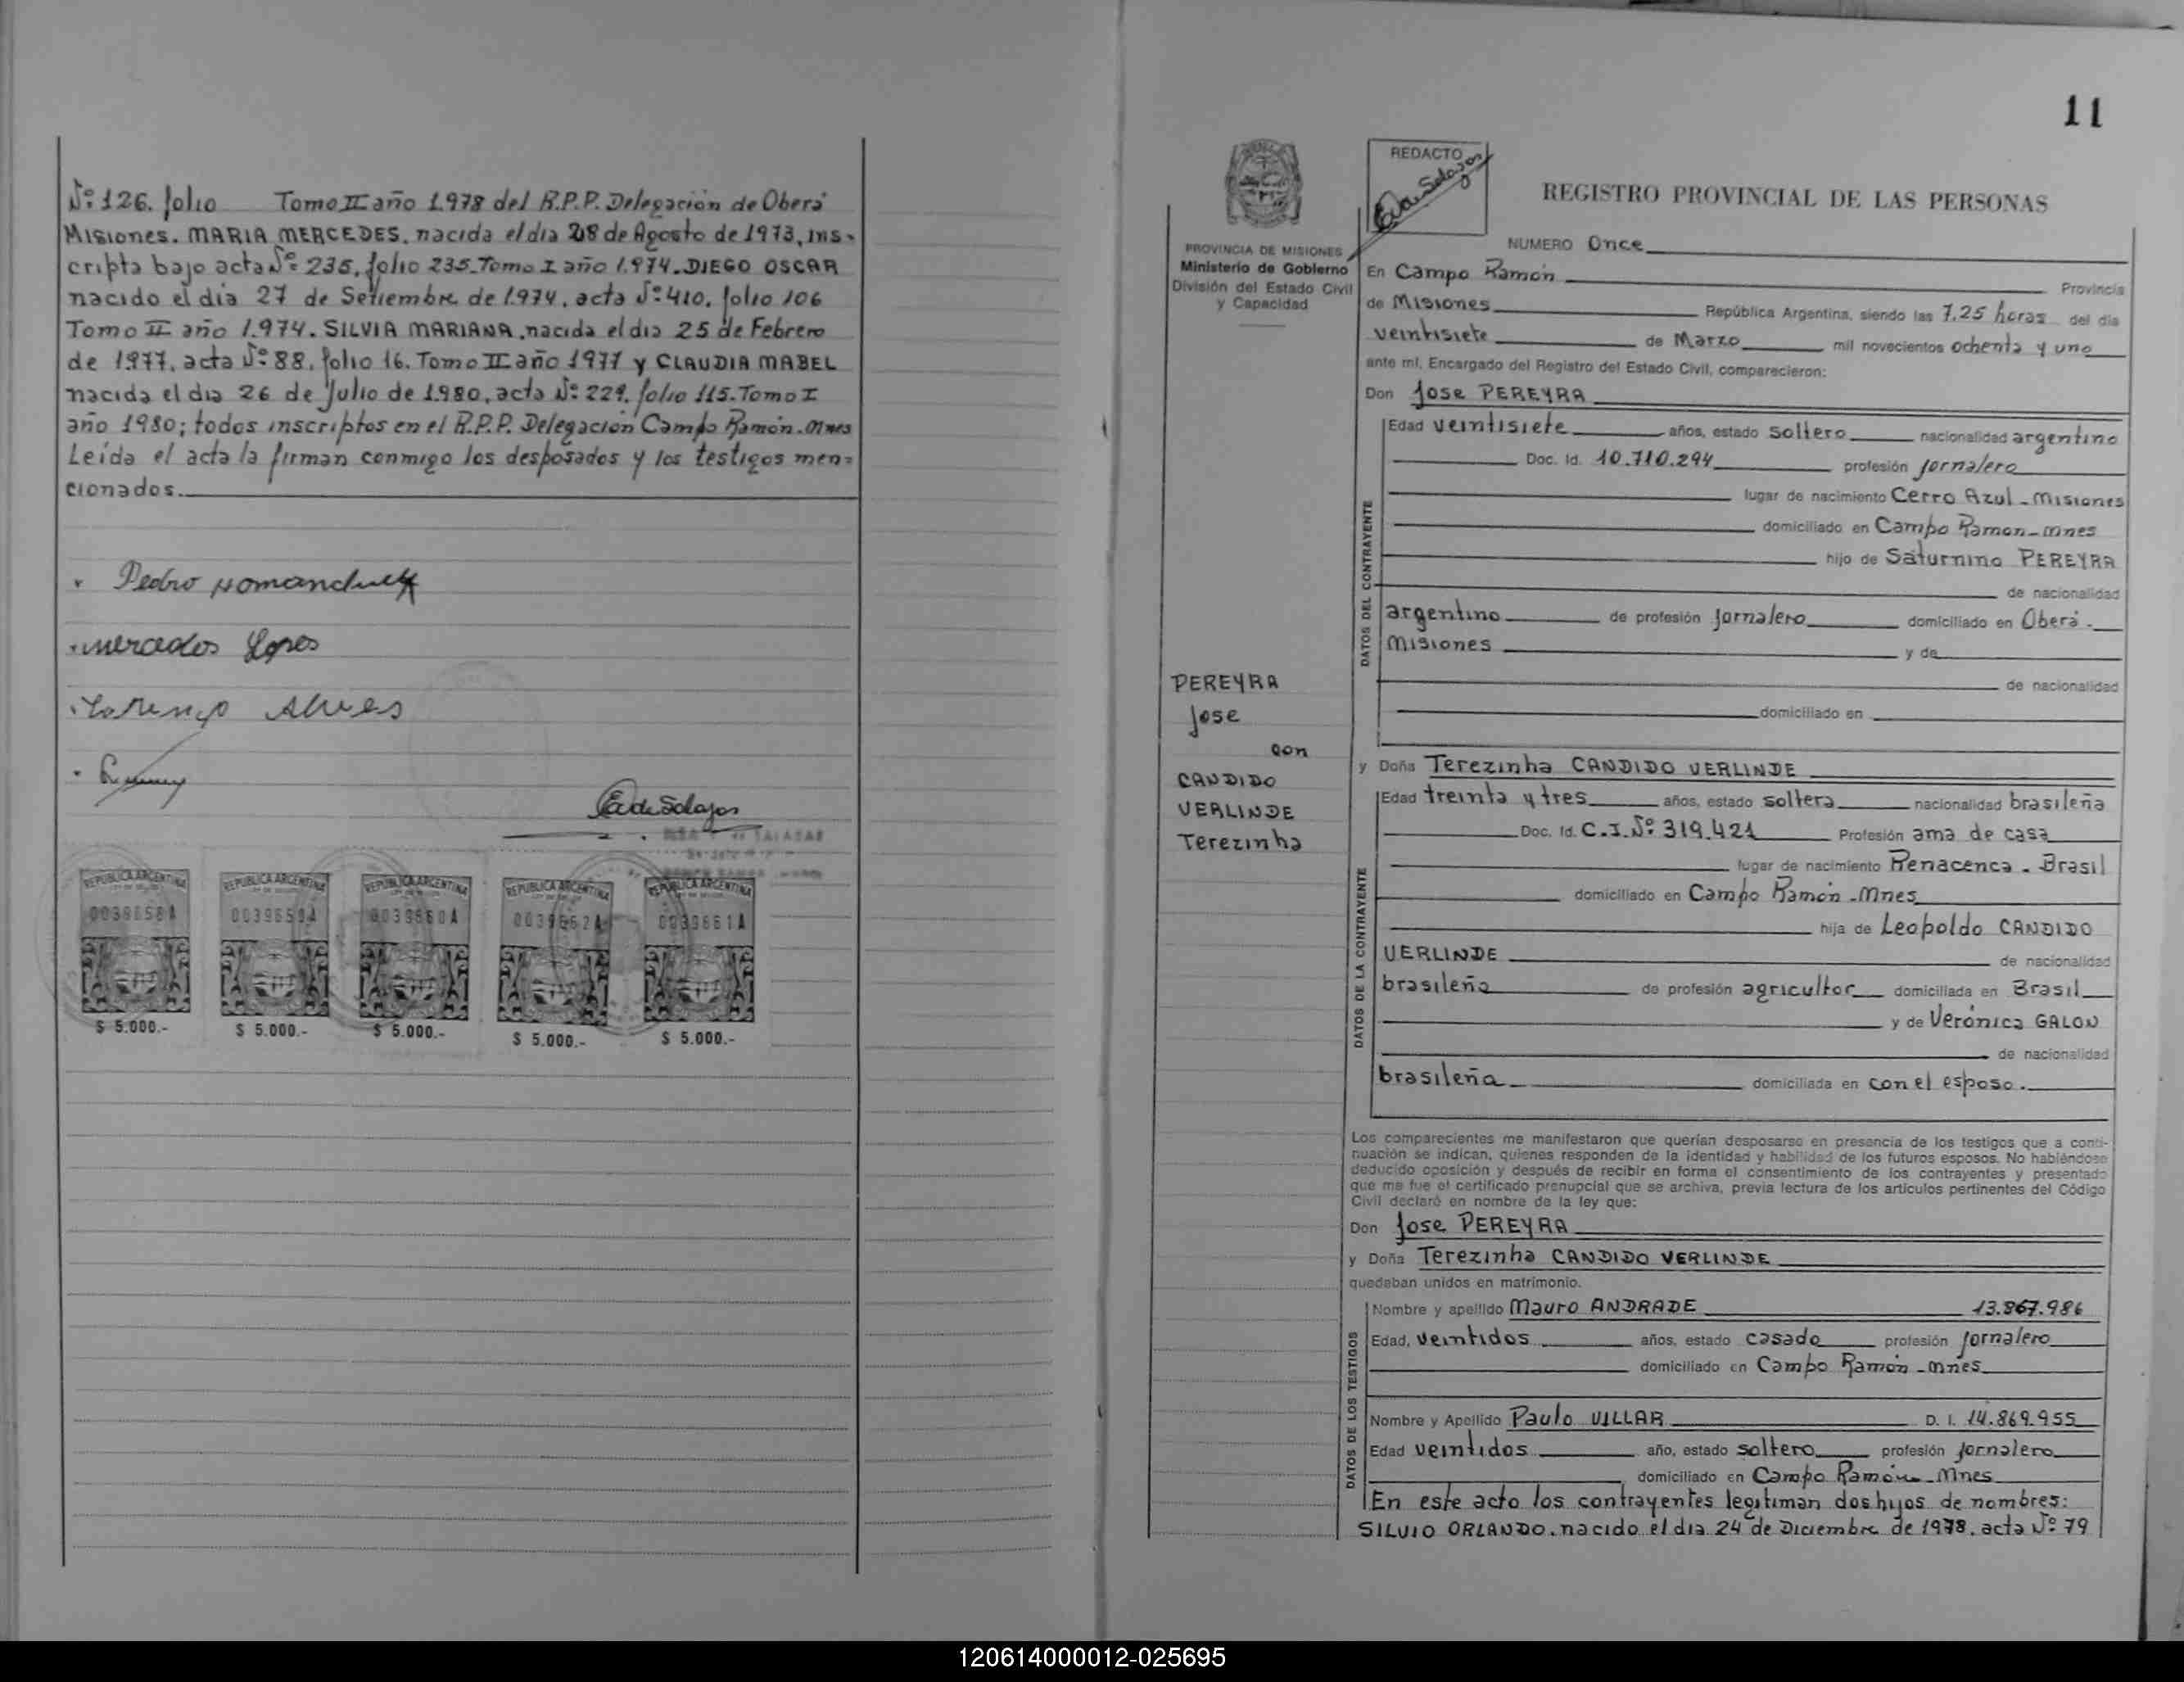 Nº 126. folio Tomo II año 1.978 del R.P.P. Delegación de Oberá
Misiones. MARIA MERCEDES. nacida el día 28 de Agosto de 1973, ins-
cripta bajo acta Nº 235, folio 235. Tomo I año 1.974. DIEGO OSCAR
nacido el día 27 de Setiembre de 1.974, acta Nº 410, folio 106
Tomo II año 1.974. SILVIA MARIANA, nacida el día 25 de Febrero
de 1.977, acta Nº 88, folio 16. Tomo II año 1977 y CLAUDIA MABEL
nacida el día 26 de Julio de 1.980, acta Nº 229, folio 115. Tomo I
año 1980; todos inscriptos en el R.P.P. Delegación Campo Ramón. Mnes
Leída el acta la firman conmigo los desposados y los testigos men-
cionados.
Pedro
Mercedes Lopes
Alves
Eva de Salazar
REPUBLICA ARGENTINA REPUBLICA ARGENTINA REPUBLICA ARGENTINA REPUBLICA ARGENTINA REPUBLICA ARGENTINA
0039658A 0039659A 0039660A 0039662A 0039661A
$ 5.000.- $ 5.000.- $ 5.000.- $ 5.000.- $ 5.000.-
11
REDACTO
PROVINCIA DE MISIONES
Ministerio de Gobierno
División del Estado Civil
y Capacidad
PEREYRA
Jose
con
CANDIDO
VERLINDE
Terezinha
REGISTRO PROVINCIAL DE LAS PERSONAS
NUMERO Once
En Campo Ramón Provincia
de Misiones República Argentina, siendo las 7,25 horas del día
veintisiete de Marzo mil novecientos ochenta y uno
ante mí, Encargado del Registro del Estado Civil, comparecieron:
Don Jose PEREYRA
DATOS DEL CONTRAYENTE
Edad veintisiete años, estado soltero nacionalidad argentino
Doc. Id. 10.710.294 profesión jornalero
lugar de nacimiento Cerro Azul - Misiones
domiciliado en Campo Ramon - Mnes
hijo de Saturnino PEREYRA
de nacionalidad
argentino de profesión jornalero domiciliado en Oberá -
Misiones y de
de nacionalidad
domiciliado en
y Doña Terezinha CANDIDO VERLINDE
DATOS DE LA CONTRAYENTE
Edad treinta y tres años, estado soltera nacionalidad brasileña
Doc. Id. C.I. Nº 319.421 Profesión ama de casa
lugar de nacimiento Renacenca - Brasil
domiciliado en Campo Ramón - Mnes
hija de Leopoldo CANDIDO
VERLINDE de nacionalidad
brasileña de profesión agricultor domiciliada en Brasil
y de Verónica GALON
de nacionalidad
brasileña domiciliada en con el esposo.
Los comparecientes me manifestaron que querían desposarse en presencia de los testigos que a conti-
nuación se indican, quienes responden de la identidad y habilidad de los futuros esposos. No habiéndose
deducido oposición y después de recibir en forma el consentimiento de los contrayentes y presentado
que me fue el certificado prenupcial que se archiva, previa lectura de los artículos pertinentes del Código
Civil declaró en nombre de la ley que:
Don Jose PEREYRA
y Doña Terezinha CANDIDO VERLINDE
quedaban unidos en matrimonio.
DATOS DE LOS TESTIGOS
Nombre y apellido Mauro ANDRADE 13.867.986
Edad, veintidos años, estado casado profesión jornalero
domiciliado en Campo Ramón - Mnes
Nombre y Apellido Paulo VILLAR D. I. 14.869.955
Edad veintidos año, estado soltero profesión jornalero
domiciliado en Campo Ramón - Mnes
En este acto los contrayentes legitiman dos hijos de nombres:
SILVIO ORLANDO. nacido el día 24 de Diciembre de 1978, acta Nº 79
120614000012-025695